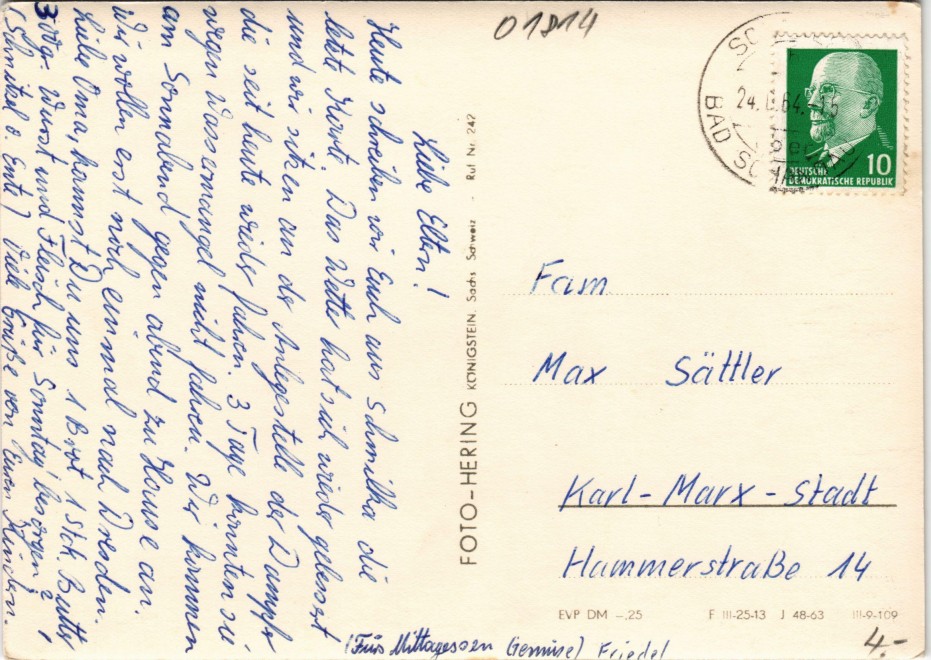 01814
SC
24. 6.64.-15
BAD SCHANDAU
10
DEUTSCHE
DEMOKRATISCHE REPUBLIK
Liebe Eltern!
Heute schreiben wir Euch aus Schmilka die
letzte Karte. Das Wetter hat sich wieder gebessert
und wir sitzen an der Anlegestelle der Dampfer
die seit heute wieder fahren. 3 Tage konnten sie
wegen Wassermangel nicht fahren. Wir kommen
am Sonnabend gegen abend zu Hause an.
Wir wollen erst noch einmal nach Dresden.
Liebe Oma, kannst Du uns 1 Brot 1 Stck. Butter
300gr. Wurst und Fleisch für Sonntag besorgen?
(Schnitzel o. Ente) Viele Grüße von Euren Kindern.
(Fürs Mittagessen Gemüse) Friedel
FOTO-HERING KÖNIGSTEIN, Sächs Schweiz - Ruf Nr. 242
Fam
Max Sättler
Karl-Marx-Stadt
Hammerstraße 14
EVP DM -,25 F III-25-13 J 48-63 III-9-109
4.-